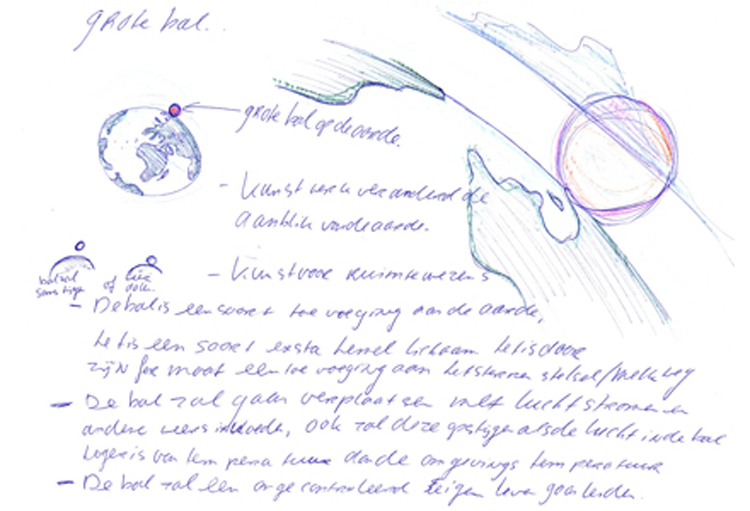 grote bal..
grote bal op de aarde.
- Kunstwerk veranderd de
aanblik van de aarde.
- Kunst voor ruimtewezens
of
- De bal is een soort toe voeging aan de aarde,
het is een soort extra hemel lichaam het is door
zijn formaat een toe voeging aan het sterren stelsel/melkweg
- De bal zal gaan verplaatsen met luchtstromen en
andere weersinvloeden, ook zal deze gestijgen als de lucht in de bal
hoger is van temperatuur dan de omgevings temperatuur
- De bal zal een ongecontroleerd eigen leven gaan leiden.